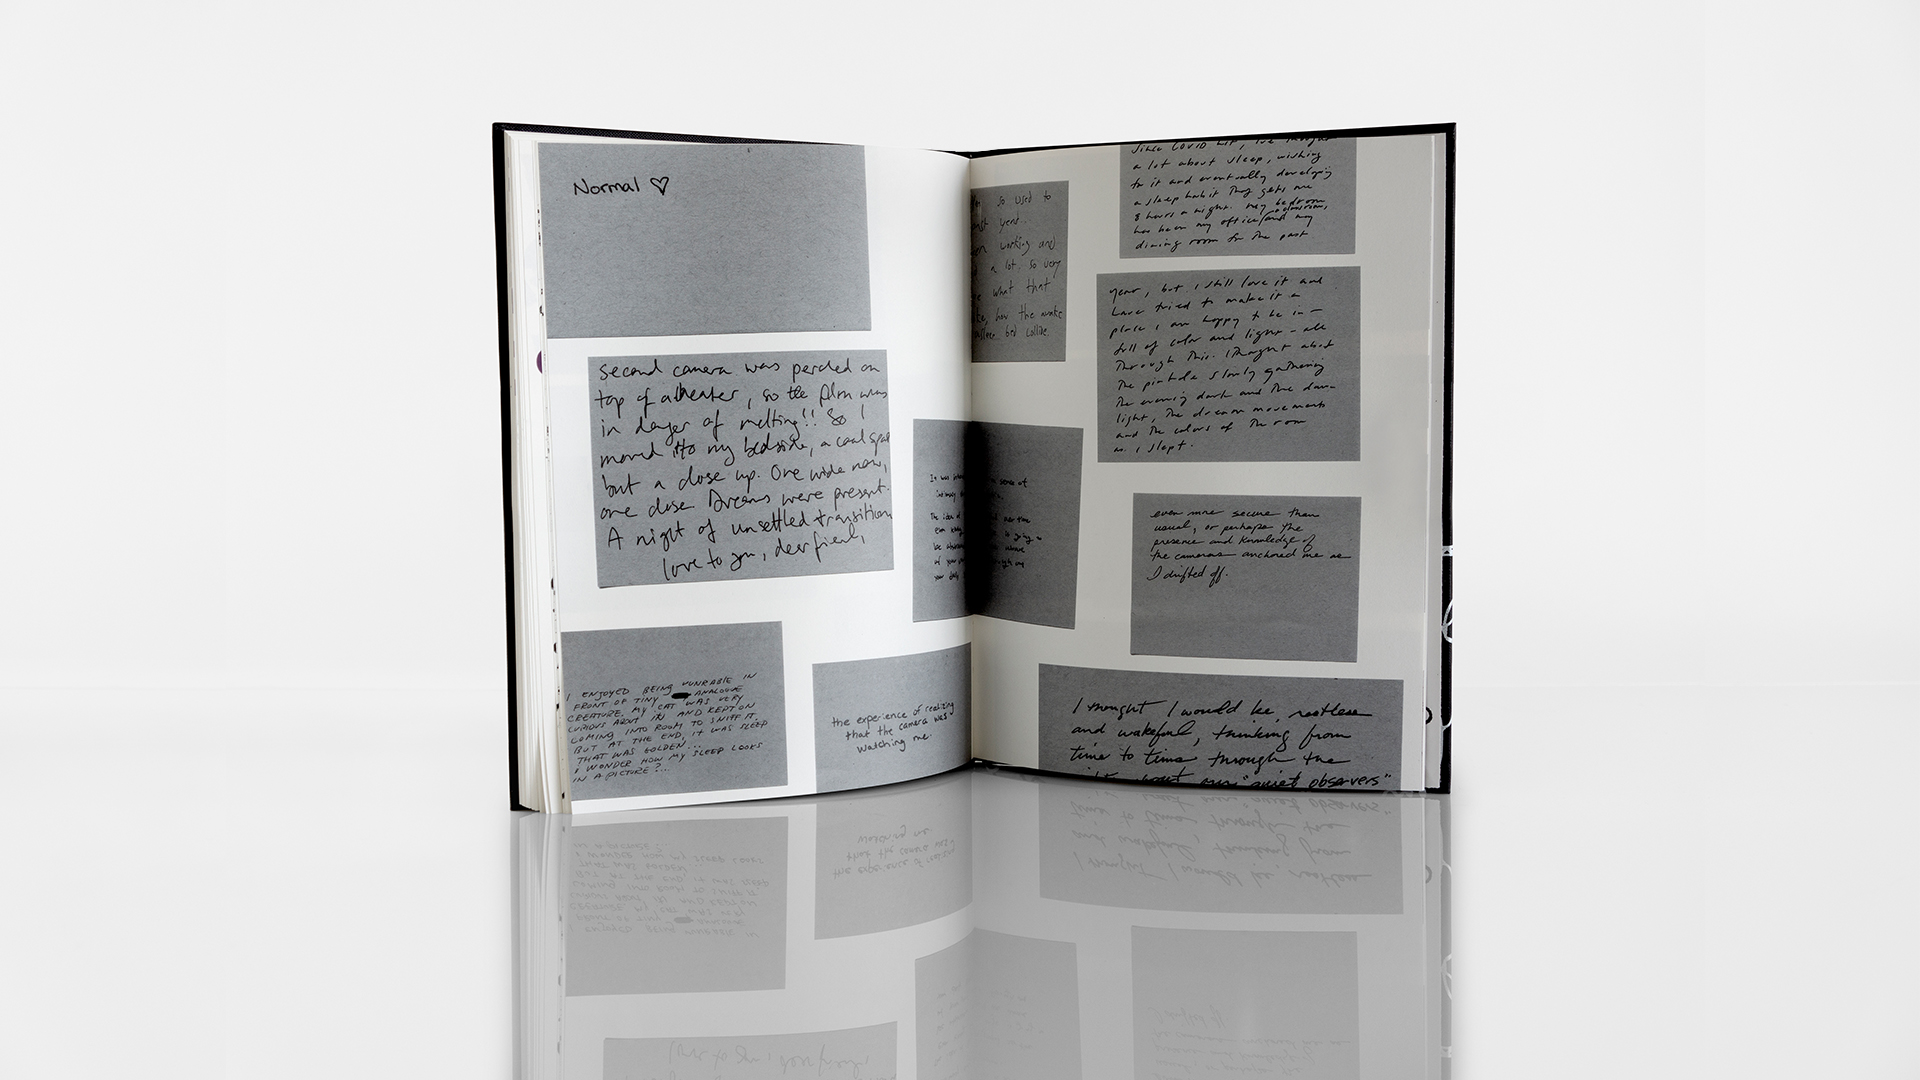 Normal ♡
second camera was perched on
top of a heater, so the film was
in danger of melting!! So I
moved it to my bedside, a cool spot
but a close up. One wide now,
one close. Dreams were present.
A night of unsettled transition
love to you, dear friend,
I ENJOYED BEING VUNRABLE IN
FRONT OF TINY ANALOGUE
CREATURE. MY CAT WAS VERY
CURIOUS ABOUT IT AND KEPT ON
COMING INTO ROOM TO SNIFF IT.
BUT AT THE END, IT WAS SLEEP
THAT WAS GOLDEN...
I WONDER HOW MY SLEEP LOOKS
IN A PICTURE?...
the experience of realizing
that the camera was
watching me.
so used to
year.
working and
a lot. so very
what that
her the awake
bed collide.
It was
sense of
intimacy
The idea of
over time
even
going
be
above
of your
your daily
Since COVID hit, I've thought
a lot about sleep, wishing
for it and eventually developing
a sleep habit that gets me
8 hours a night. My bedroom
has been my office, classroom, and my
dining room for the past
year, but I still love it and
have tried to make it a
place I am happy to be in –
full of color and light – all
through this. I thought about
the pinhole slowly gathering
the evening dark and the dawn
light, the dream movements
and the colors of the room
as I slept.
even more secure than
usual, or perhaps the
presence and knowledge of
the cameras anchored me as
I drifted off.
I thought I would be restless
and wakeful, thinking from
time to time through the
night about our "quiet observers"